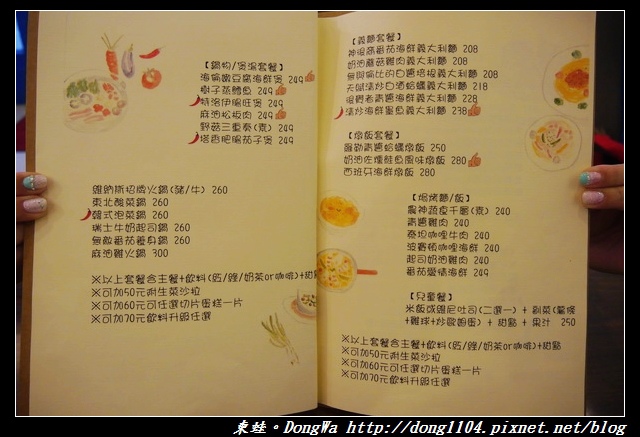 【鍋物/煲湯套餐】
海鮮嫩豆腐海鮮煲 249
樹子蒸鱈魚 249
特洛伊腸旺煲 249
麻油松板肉 249
野菇三重奏(素) 249
塔香肥腸茄子煲 249
維納斯招牌火鍋(豬/牛) 260
東北酸菜鍋 260
韓式泡菜鍋 260
瑞士牛奶起司鍋 260
無敵蕃茄養身鍋 260
麻油雞火鍋 300
※以上套餐含主餐+飲料(紅/綠/奶茶or咖啡)+甜點
※可加50元附生菜沙拉
※可加60元可任選切片蛋糕一片
※可加70元飲料升級任選
【義麵套餐】
神湯底蕃茄海鮮義大利麵 208
奶油蘑菇雞肉義大利麵 208
無與倫比的白醬培根義大利麵 208
天賦清炒白酒蛤蠣義大利麵 218
青醬海鮮義大利麵 228
清炒海鮮墨魚義大利麵 238
【燉飯套餐】
羅勒青醬蛤蠣燉飯 250
奶油佐燻鮭魚風味燉飯 280
西班牙海鮮燉飯 280
【焗烤麵/飯】
農神蔬皮千層(素) 240
青醬雞肉 240
泰坦咖哩牛肉 240
波賽頓咖哩海鮮 240
起司奶油雞肉 240
蕃茄愛情海鮮 249
【兒童餐】
米飯或雞尼吐司(二選一) + 副菜(薯條
+雞球+炒歐姆蛋) + 甜點 + 果汁 250
※以上套餐含主餐+飲料(紅/綠/奶茶or咖啡)+甜點
※可加50元附生菜沙拉
※可加60元可任選切片蛋糕一片
※可加70元飲料升級任選
東蛙。DongWa http://dong1104.pixnet.net/blog